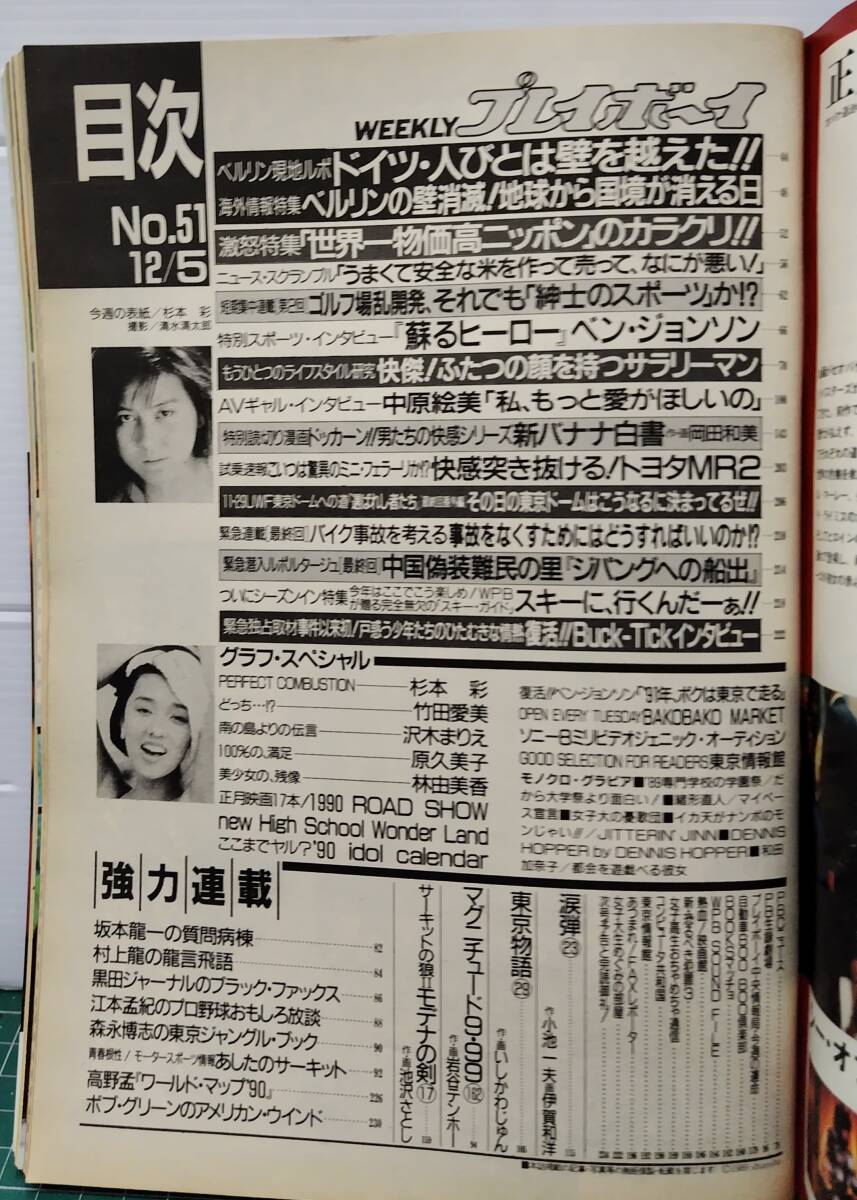 目次
No.51
12/5
WEEKLY プレイボーイ
ベルリン現地ルポ ドイツ・人びとは壁を越えた!! 44
海外情報特集 ベルリンの壁消滅!地球から国境が消える日 48
激怒特集「世界一物価高ニッポン」のカラクリ!! 52
ニュース・スクランブル「うまくて安全な米を作って売って、なにが悪い!」 56
短期集中連載[第2回] ゴルフ場乱開発、それでも「紳士のスポーツ」か!? 62
特別スポーツ・インタビュー『蘇るヒーロー』ベン・ジョンソン 66
もうひとつのライフスタイル研究 快傑!ふたつの顔を持つサラリーマン 78
AVギャル・インタビュー 中原絵美「私、もっと愛がほしいの」
特別読み切り漫画 ドッカーン!!男たちの快感シリーズ 新バナナ白書 作・画 岡田和美
試乗速報 こいつは驚異のミニ・フェラーリか!? 快感突き抜ける!トヨタMR2 203
11・29UWF東京ドームへの道「選ばれし者たち」 その日の東京ドームはこうなるに決まってるぜ!! 206
緊急連載[最終回] バイク事故を考える 事故をなくすためにはどうすればいいのか!? 210
緊急潜入ルポルタージュ[最終回] 中国偽装難民の里『ジパングへの船出』 214
ついにシーズンイン特集 今年はここでこう楽しめ!WPBが贈る完全無欠の「スキー・ガイド」 スキーに、行くんだーぁ!! 218
緊急独占取材 事件以来初!戸惑う少年たちのひたむきな情熱 復活!!Buck-Tickインタビュー 222
今週の表紙/杉本 彩
撮影/清水清太郎
グラフ・スペシャル
PERFECT COMBUSTION 杉本 彩
どっち…!? 竹田愛美
南の島よりの伝言 沢木まりえ
100%の、満足 原久美子
美少女の、残像 林由美香
正月映画17本/1990 ROAD SHOW
new High School Wonder Land
ここまでヤル?'90 idol calendar
復活!!ベン・ジョンソン「'91年、ボクは東京で走る」
OPEN EVERY TUESDAY BAKOBAKO MARKET
ソニー8ミリビデオジェニック・オーディション
GOOD SELECTION FOR READERS 東京情報館
モノクロ・グラビア■'89専門学校の学園祭/だ
から大学祭より面白い!■緒形直人/マイペー
ス宣言■女子大の憂歌団■イカ天がナンボのモ
ンじゃい!!/JITTERIN' JINN■DENNIS
HOPPER by DENNIS HOPPER■和田
加奈子/都会を遊戯べる彼女
強力連載
坂本龍一の質問病棟 82
村上龍の龍言飛語 84
黒田ジャーナルのブラック・ファックス 86
江本孟紀のプロ野球おもしろ放談 88
森永博志の東京ジャングル・ブック 90
青春根性/モータースポーツ情報 あしたのサーキット 92
高野孟『ワールド・マップ'90』 226
ボブ・グリーンのアメリカン・ウインド 230
涙弾㉓ 作・小池一夫 画・伊賀和洋 115
東京物語㉙ 作・画・いしかわじゅん
マグニチュード9・99 作・画・岩谷テンホー 94
サーキットの狼II モデナの剣⑰ 作・画・池沢さとし
PB生録劇場
プレイボーイ中央情報局・今週の運命
自動車BOO BOO倶楽部
BOOKSマッチョ
WPB SOUND FILE
熱血!映画館
新・栄るべき犯罪
女子高生おちゃめちゃ通信
コンピュータ共和国
東京情報館
あつまれ!FAXレポーター
女子大生めぐみの部屋
次号予告と完読御礼!
■本誌掲載の記事・写真等の無断複製・転載を禁じます